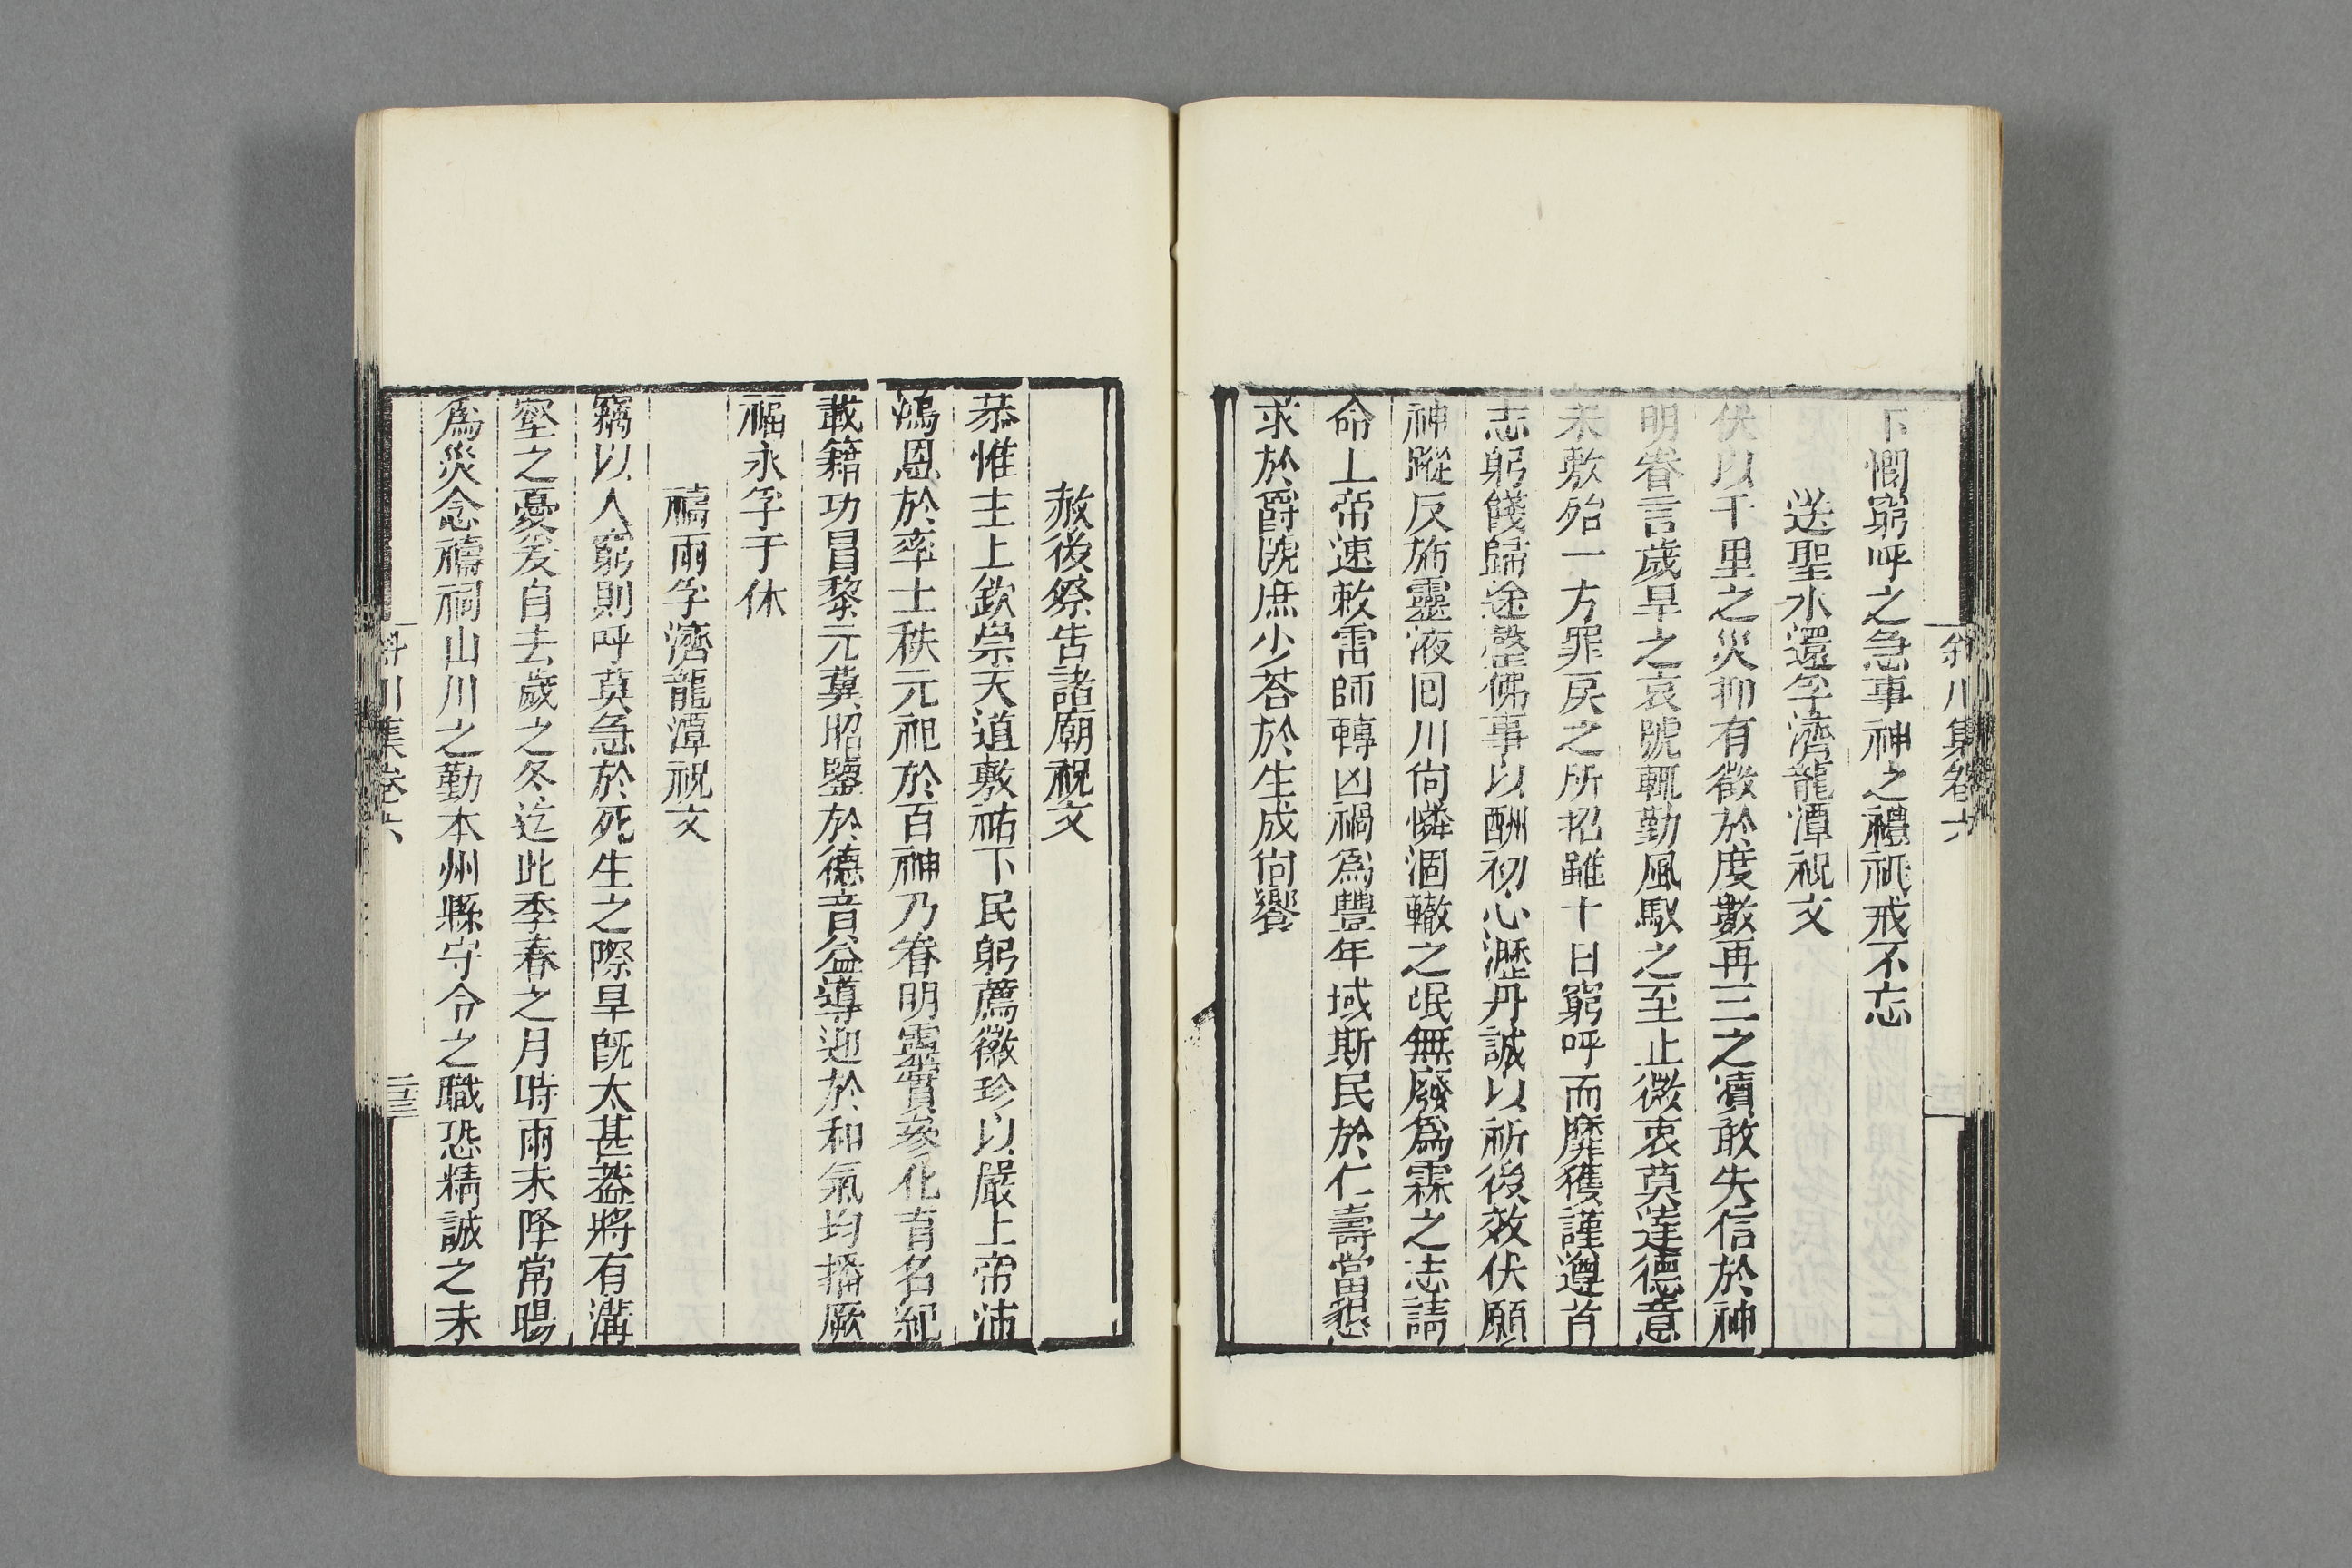 下惻窮呼之急事神之禮祇戒不忘
送聖水還孚濟龍潭祝文
伏以千里之災抑有徵於度數再三之瀆敢失信於神
明眷言歲旱之哀號輒勤風馭之至止微衷莫達德意
未敷殆一方罪戾之所招雖十日窮呼而靡獲謹遵首
志躬餞歸途整佛事以酬初心瀝丹誠以祈後效伏願
神蹤反斾靈液囘川尙憐涸轍之氓無廢爲霖之志請
命上帝速敕雷師轉凶禍爲豐年域斯民於仁壽當懇
求於爵號庶少荅於生成尙饗
斜川集卷六
赦後祭告諸廟祝文
恭惟主上欽崇天道敷祐下民躬薦徽珍以嚴上帝沛
鴻恩於率土秩元祀於百神乃眷明靈實參化育名紀
載籍功昌黎元冀昭鑒於德音益導迎於和氣均播厥
福永孚于休
禱雨孚濟龍潭祝文
竊以人窮則呼莫急於死生之際旱旣太甚葢將有溝
壑之憂爰自去歲之冬迄此季春之月時雨未降常暘
爲災念禱祠山川之勤本州縣守令之職恐精誠之未
斜川集卷六